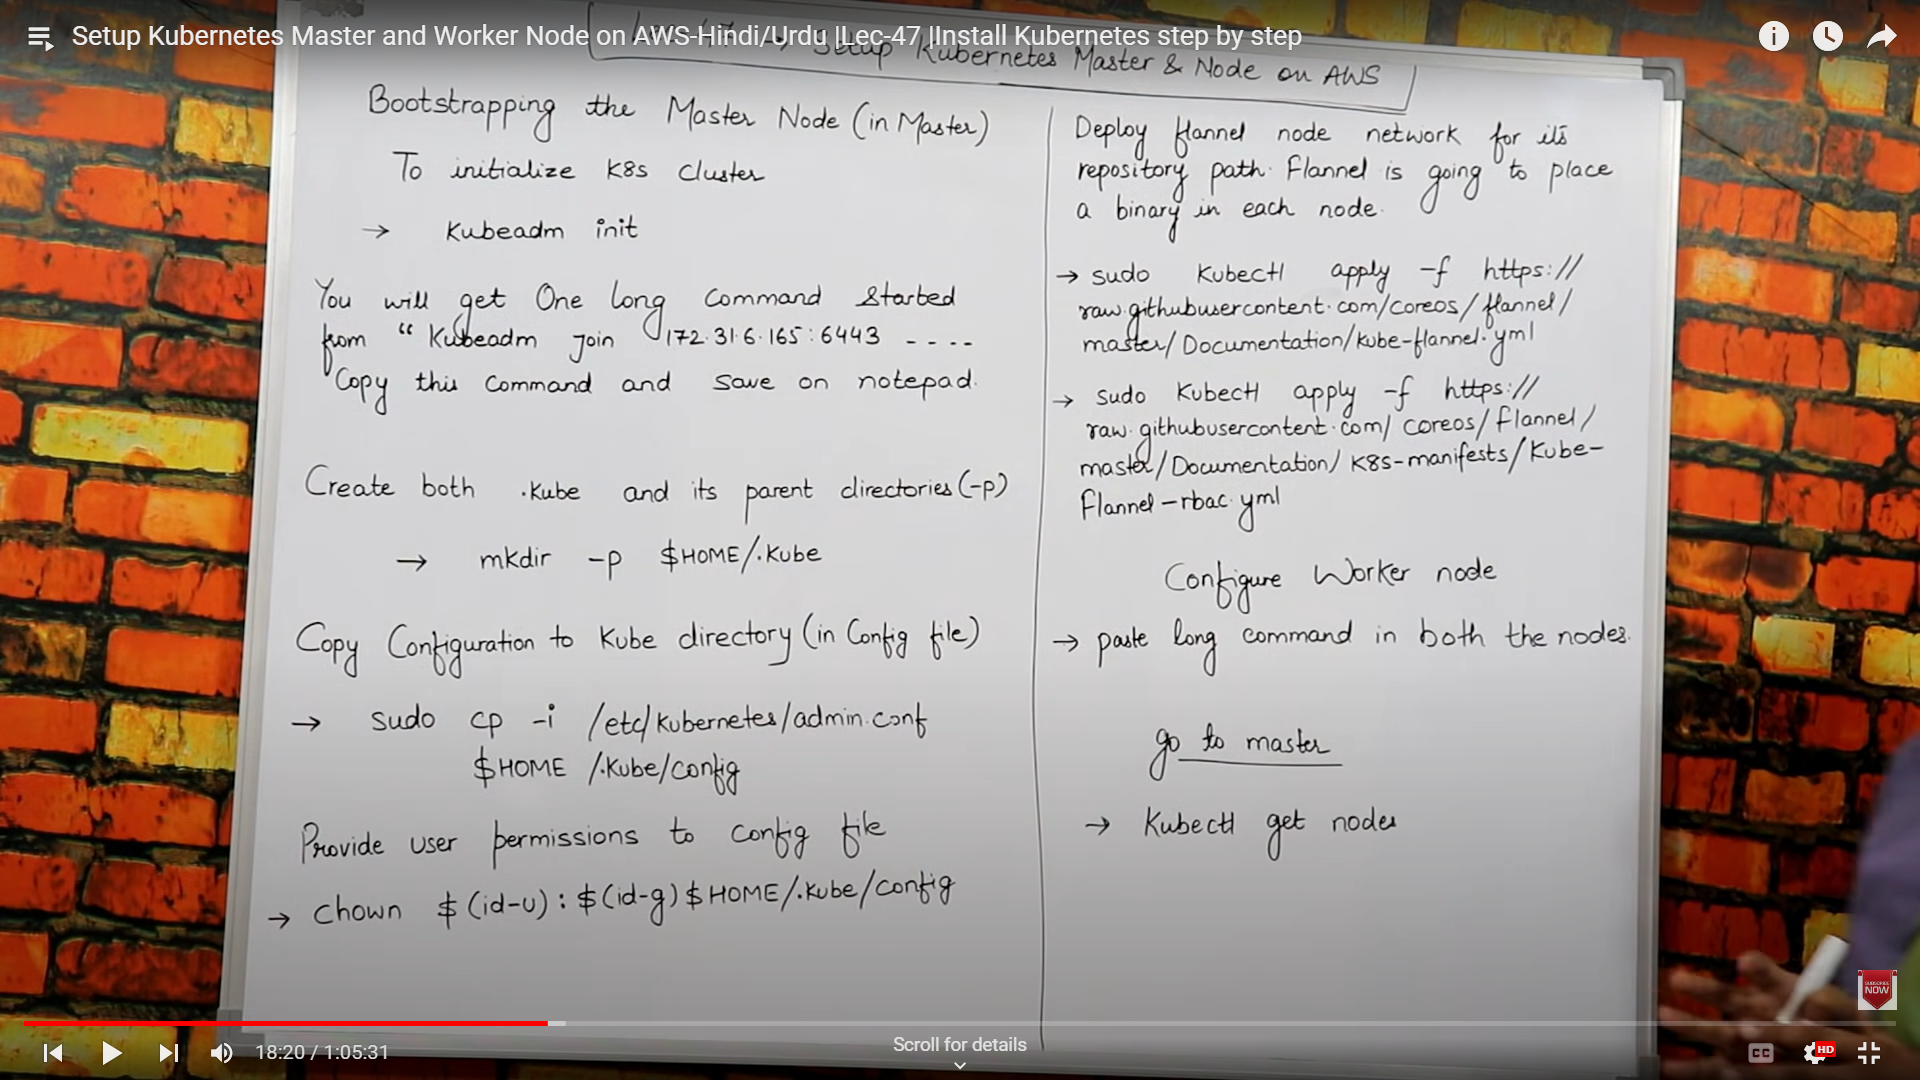 Setup Kubernetes Master and Worker Node on AWS-Hindi/Urdu |Lec-47 |Install Kubernetes step by step
Setup Kubernetes Master & Node on AWS
Bootstrapping the Master Node (in Master)
To initialize K8s Cluster
→ Kubeadm init
You will get One long Command Started
from “Kubeadm join 172.31.6.165:6443 ----
Copy this Command and save on notepad.
Create both .Kube and its parent directories (-p)
→ mkdir -p $HOME/.Kube
Copy Configuration to Kube directory (in Config file)
→ sudo cp -i /etc/kubernetes/admin.conf
$HOME /.Kube/config
Provide user permissions to config file
→ Chown $(id-u):$(id-g) $HOME/.Kube/config
Deploy flannel node network for its
repository path. Flannel is going to place
a binary in each node.
→ sudo Kubectl apply -f https://
raw.githubusercontent.com/coreos/flannel/
master/Documentation/kube-flannel.yml
→ sudo Kubectl apply -f https://
raw.githubusercontent.com/coreos/flannel/
master/Documentation/K8s-manifests/Kube-
flannel-rbac.yml
Configure Worker node
→ paste long command in both the nodes.
go to master
→ Kubectl get nodes
SUBSCRIBE
NOW
18:20 / 1:05:31
Scroll for details
CC
HD